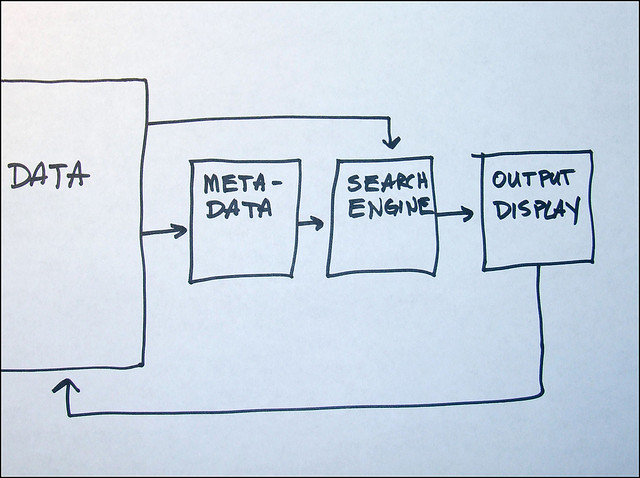 DATA
META-
DATA
SEARCH
ENGINE
OUTPUT
DISPLAY